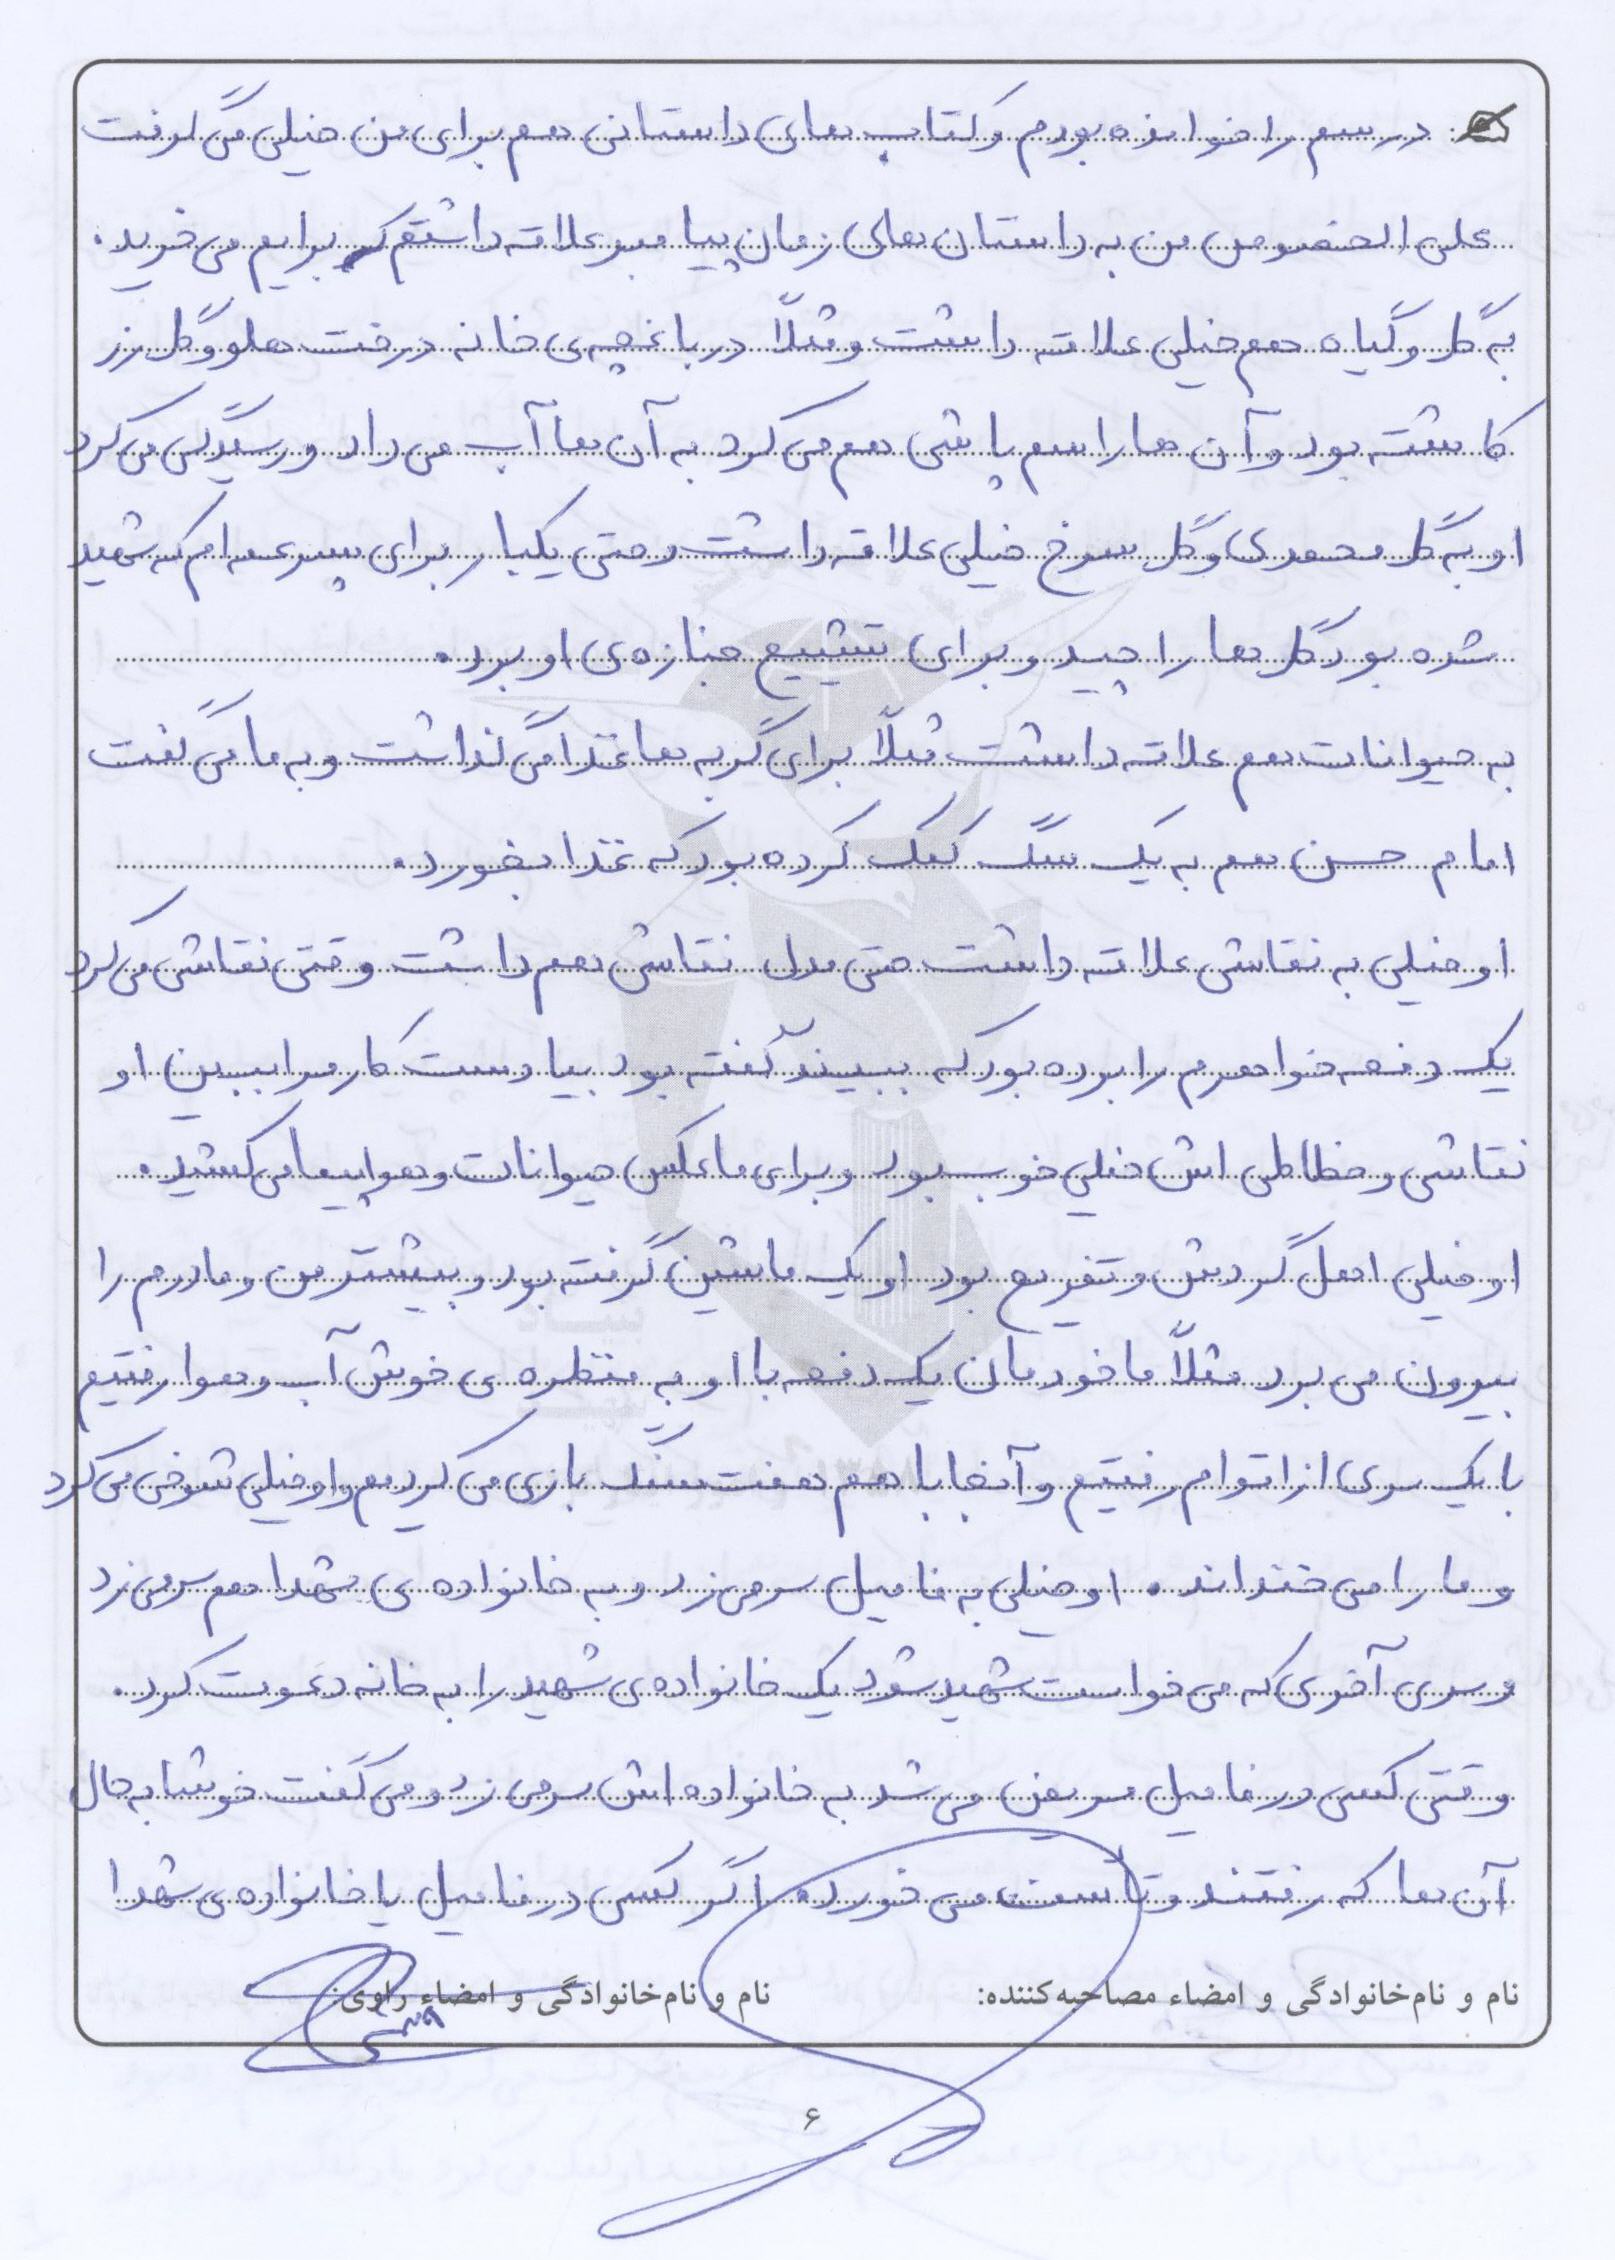 درسم را خوانده بودم و کتاب های داستانی هم برای من خیلی می گرفت
علی الخصوص من به داستان های زمان پیامبر علاقه داشتم که برایم می خرید.
به گل و گیاه هم خیلی علاقه داشت و مثلاً در باغچه ی خانه درخت هلو و گل رز
کاشته بود و آن ها را سم پاشی هم می کرد به آن ها آب می داد و رسیدگی می کرد
او به گل محمدی و گل سرخ خیلی علاقه داشت و حتی یکبار برای پسرعمه ام که شهید
شده بود گل ها را چید و برای تشییع جنازه ی او برد.
به حیوانات هم علاقه داشت مثلاً برای گربه ها غذا می گذاشت و به ما می گفت
امام حسن هم به یک سگ کمک کرده بود که غذا بخورد.
او خیلی به نقاشی علاقه داشت حتی مدل نقاشی هم داشت وقتی نقاشی می کرد
یک دفعه خواهرم را برده بود که ببیند گفته بود بیا دست کار مرا ببین او
نقاشی و خطاطی اش خیلی خوب بود و برای ما عکس حیوانات و هواپیما می کشید.
او خیلی اهل گردش و تفریح بود او یک ماشین گرفته بود و بیشتر من و مادرم را
بیرون می برد مثلاً ما خودمان یک دفعه با او به منظره ی خوش آب و هوا رفتیم
با یک سری از اقوام رفتیم و آنجا با هم هفت سنگ بازی می کردیم و او خیلی شوخی می کرد
و ما را می خنداند. او خیلی به فامیل سر می زد و به خانواده ی شهدا هم سر می زد
و سری آخری که می خواست شهید شود یک خانواده ی شهید را به خانه دعوت کرد.
وقتی کسی در فامیل مریض می شد به خانواده اش سر می زد و می گفت خوشا به حال
آن ها که رفتند و تاسف می خورد. اگر کسی در فامیل یا خانواده ی شهدا
نام و نام‌خانوادگی و امضاء مصاحبه‌کننده: نام و نام‌خانوادگی و امضاء راوی:
۶